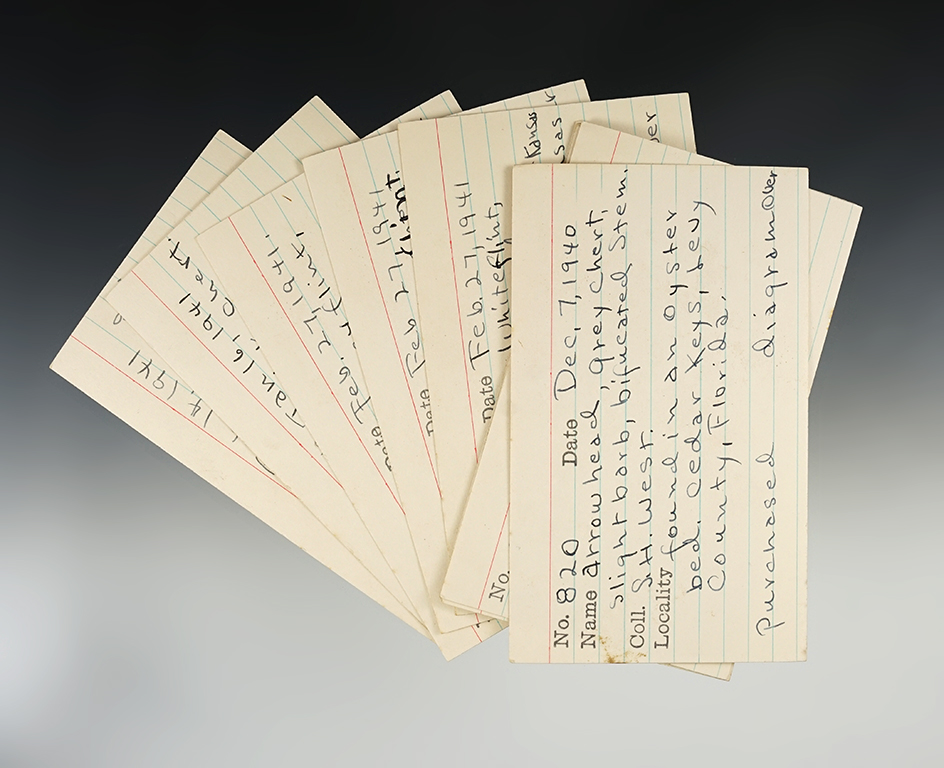 No. 820 Date Dec, 7, 1940
Name Arrowhead, grey chert,
slight barb, bifucated Stem.
Coll. S.H. West.
Locality found in an oyster
bed. Cedar Keys, Levy
County, Florida.
Purchased diagram Over
No.
Date Feb. 27, 1941
White flint,
Kansas
Date Feb 27 1941
flint
Feb. 27, 1941.
flint'
Jan. 16, 1941
Chert.
14, 1941